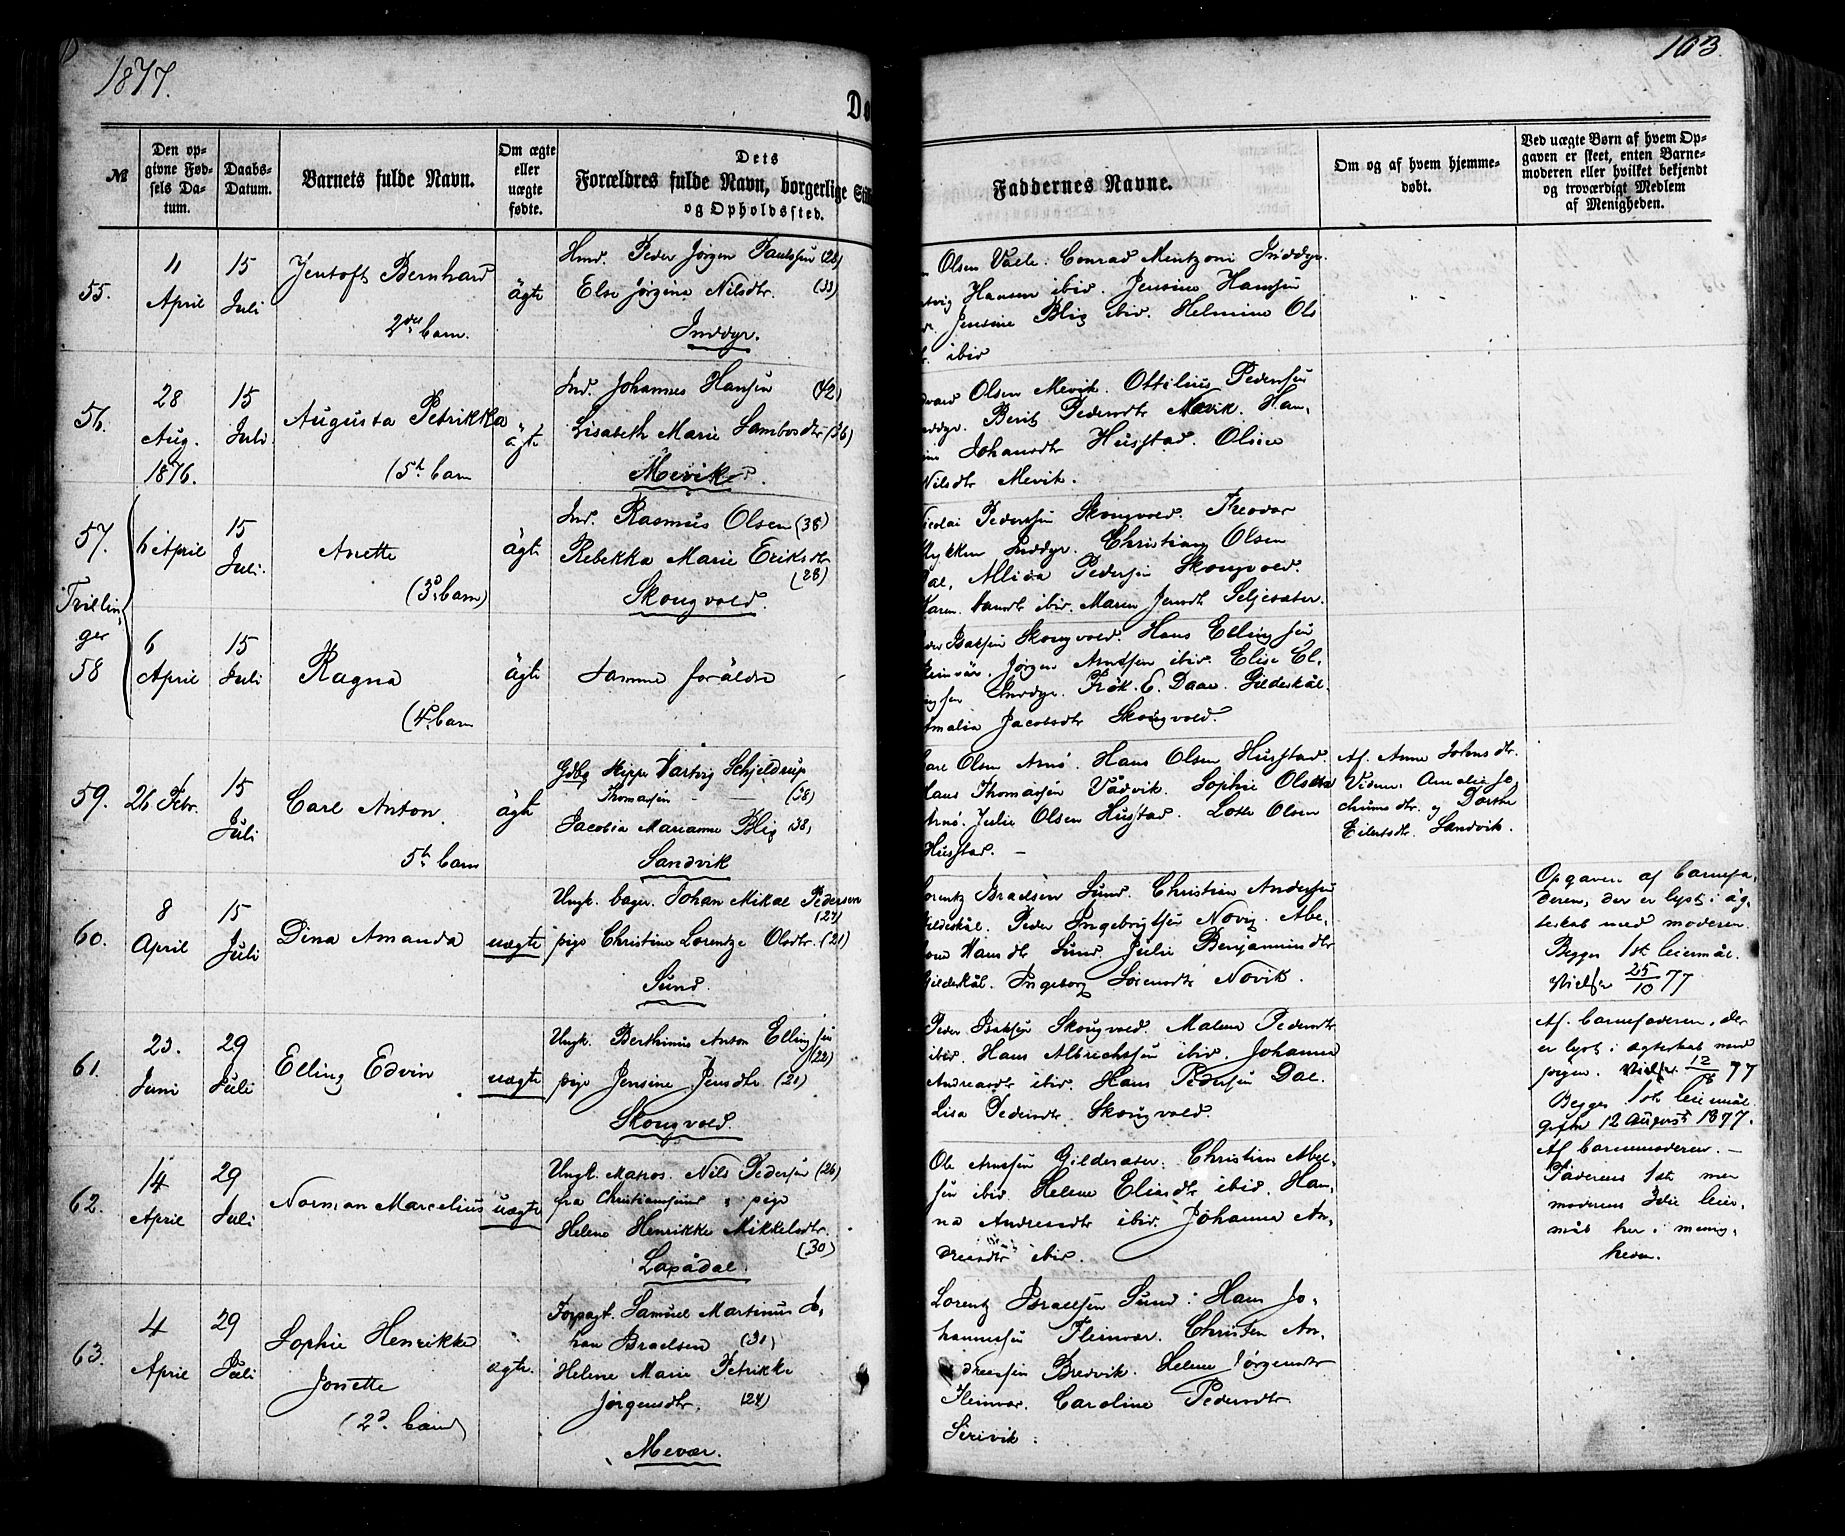 1877.
103.
Da
№
Den op-
givne Fød-
sels Da-
tum.
Daabs-
Datum.
Barnets fulde Navn.
Om ægte
eller
uægte
fødte.
Dets
Forældres fulde Navn, borgerlige
og Opholdssted.
Faddernes Navne.
Om og af hvem hjemme-
døbt.
Ved uægte Børn af hvem Op-
gaven er skeet, enten Barne-
moderen eller hvilket bekjendt
og troværdigt Medlem
af Menigheden.
55.
11
April
15
Juli
Jentoft Bernhard
2det barn.
ägte
Hmd. Peder Jörgen Paulssen (28)
Else Jörgine Nilsdtr. (33)
Inddyr.
Olsen Valle. Conrad Mentzoni Inddyr.
Hansen ibid. Jensine Hansen
Jensine Blix ibid. Helmine Ols
ibid
56.
28
Aug.
1876.
15
Juli
Augusta Petrikka
(5te barn
ägte
Ind. Johannes Hansen (42)
Lisabeth Marie Lambosdtr (36)
Mevik.
Olsen Mevik. Ottilius Pedersen
Berit Pedersdtr Mevik. Han-
Johansdtr Husstad. Olsine
Nilsdtr Mevik.
57.
6 April
15
Juli.
Anette
(3de barn)
ägte
Ind. Rasmus Olsen (38)
Rebekka Marie Eriksdtr
(28)
Skougvold.
Nicolai Pedersen Skougvold. Theodor
Inddyr. Christian Olsen
Dal, Allida Pedersen Skougvold.
Karen Hansdtr ibid. Maren Jensdtr Seljesæter.
Trillin-
ger
58
6
April
15
Juli
Ragna
(4de barn
ägte
Samme foräldre
Isaksen Skougvold. Hans Ellingsen
Fleinvär. Jörgen Arntsen ibid. Elise El-
lingsen Inddyr. Frök. E. Daae. Gildeskål.
Amalia Jacobsdtr Skougvold.
59.
26 Febr.
15
Juli
Carl Anton.
5te barn
ägte
Gdbg Skipper Hartvig Schjeldrup
Thomassen (38)
Jacobia Marianne Blix (38)
Sandvik
Carl Olsen Arnö. Hans Olsen Husstad.
Hans Thomassen Vådvik. Sophie Olsen
Arnö. Julie Olsen Hustad. Lotte Olsen
Husstad. –
Af. Anne Johnsdtr.
Amalie Jo-
chumsdtr. og Dorthe
Eilertsdtr. Sandvik.
60.
8
April
15
Juli
Dina Amanda
uägte
Ungk. bager. Johan Mikal Pedersen
(27)
pige Christine Lorentze Olsdtr. (21)
Sund.
Lorentz Israelsen Sund. Christian Andersen
Gildeskål. Peder Ingebrigtsen Novig. Abe-
lone Hansdtr Sund. Julie Benjaminsdtr
Gildeskål. Ingeborg Sörensdtr Novik.
Opgaven af barnefa-
deren, der er lyst i äg-
teskab med moderen.
Begges 1ste leiermål.
Vielse 25/10 77
61.
23.
Juni
29
Juli
Elling Edvin
uægte
Ungk. Berthinus Anton Ellingsen
(22)
pige Jensine Jensdtr (21)
Skougvold.
Peder Isaksen Skougvold. Malene Pedersdtr
ibid. Hans Albrechtsen ibid. Johanna
Andreasdtr ibid. Hans Pedersen Dal.
Lisa Pedersdtr. Skougvold.
Af. barnefaderen, der
er lyst i ægteskab med
pigen. Vielse 12/8 77
Begges 1ste leiermål.
gifte 12 August 1877.
62.
14
April
29
Juli
Norman Marcelius
uægte
Ungk. Matros. Nils Pedersen (26)
fra Christiansund & pige
Helene Henrikke Mikkelsdtr.
(30)
Lapådal.
Ole Arntsen Gildesæter. Christian Abel-
sen ibid. Helene Eliasdtr ibid. Han-
na Andreasdtr ibid. Johanna An-
dreasdtr ibid.
Af barnemoderen. –
Faderens 1ste men
moderens 3die leier-
mål her i menig-
heden.
63.
4
April
29
Juli
Sophie Henrikke
Jonette
(2det barn)
ægte.
Forpagt. Samuel Martinus Jo-
han Israelsen (31)
Helene Marie Petrikke
Jörgensdtr. (24)
Mevær.
Lorentz Israelsen Sund. Hans Jo-
hannessen Fleinvær. Christen An-
dreassen Bredvik. Helene Jørgensdtr
Fleinvær. Caroline Pedersdtr
Sörvik.